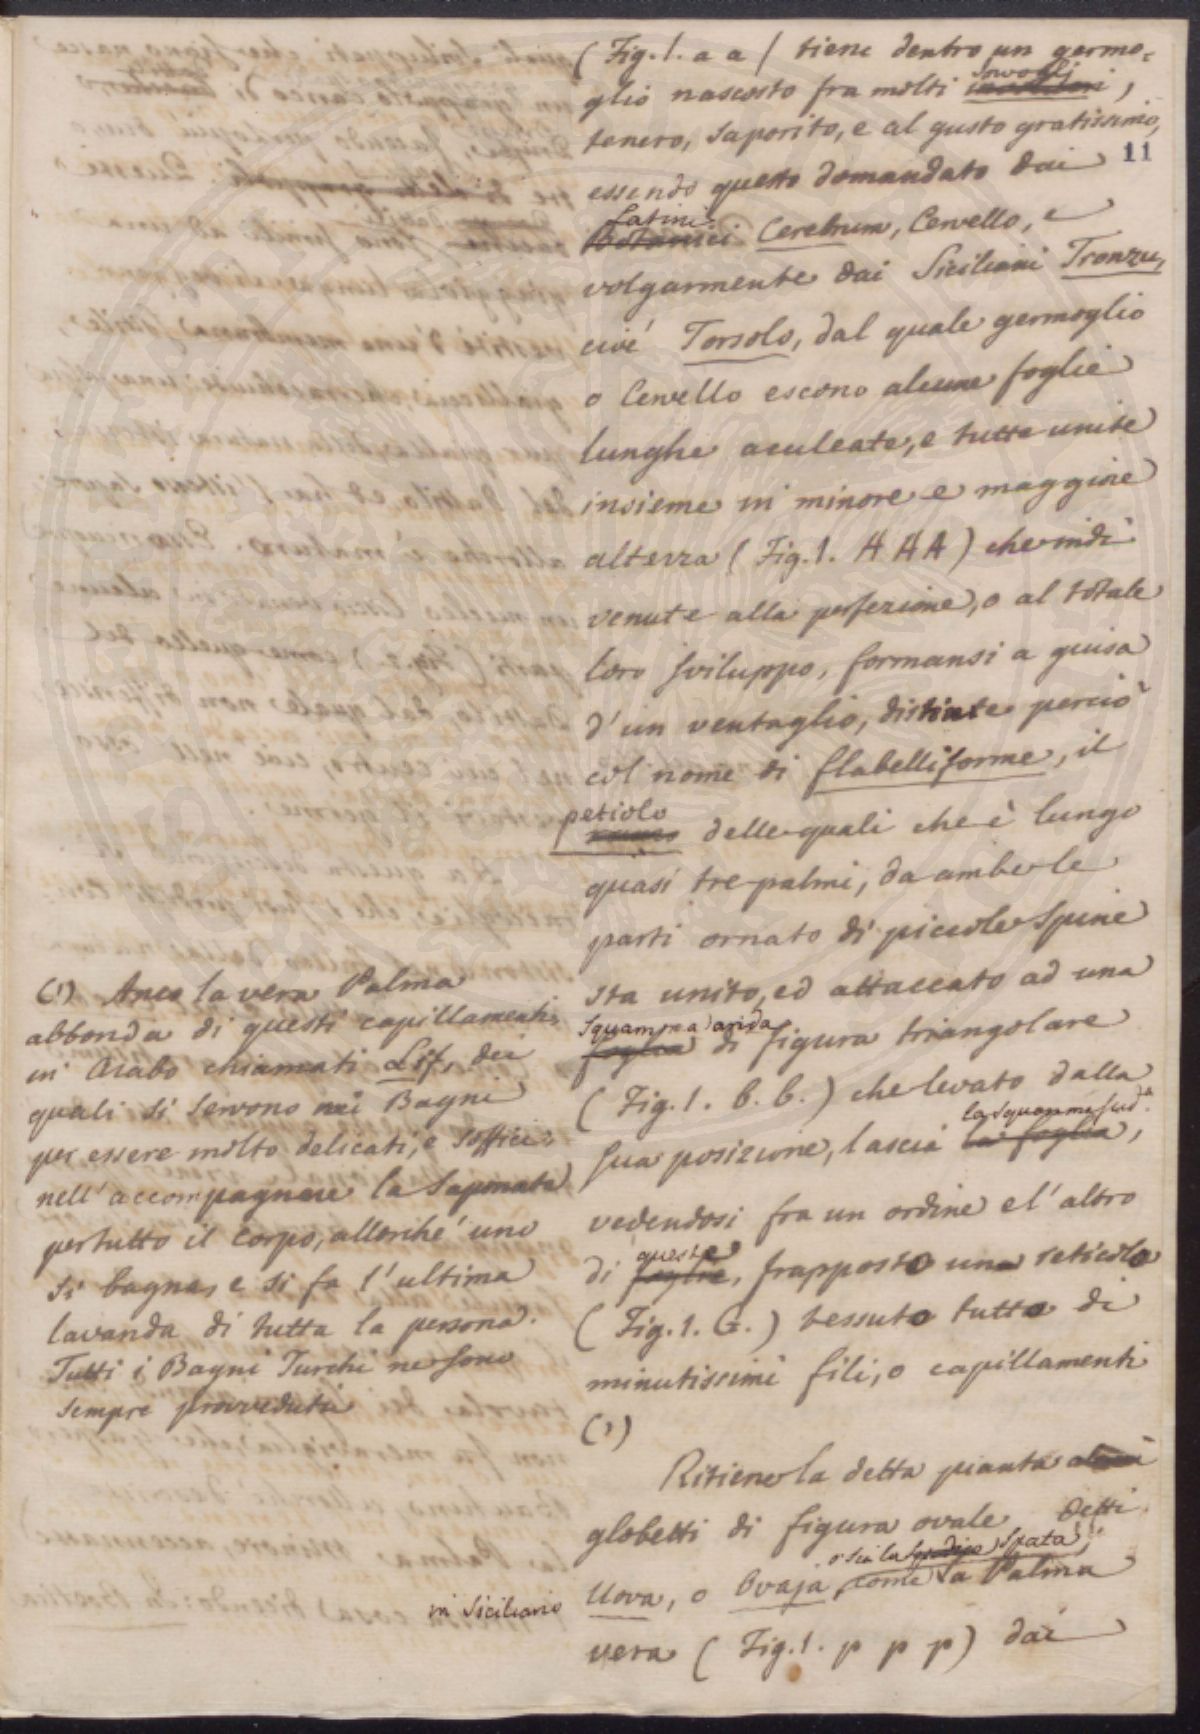 (Fig. 1. a a) tiene dentro un germo=
glio nascosto fra molti invogli,
tenero, saporito, e al gusto gratissimo,
11
essendo questo domandato dai
Latini
Botanici Cerebrum, Cervello, e
volgarmente dai Siciliani Tronzu,
cioè Torsolo, dal quale germoglio
o Cervello escono alcune foglie
lunghe aculeate, e tutte unite
insieme in minore e maggiore
altezza (Fig. 1. A A A) che indi
venute alla perfezione, o al totale
loro sviluppo, formansi a guisa
d'un ventaglio, distinte perciò
col nome di flabelliforme, il
petiolo
delle quali che è lungo
quasi tre palmi, da ambe le
parti ornato di piccole spine
sta unito, ed attaccato ad una
squamma arida
foglia di figura triangolare
(Fig. 1. b. b.) che levato dalla
la squamma sud.a
sua posizione, lascia la foglia,
vedendosi fra un ordine e l'altro
queste
di foglie, frapposto uno reticolo
(Fig. 1. G.) tessuto tutto di
minutissimi fili, o capillamenti
(1)
Ritiene la detta pianta alcuni
globetti di figura ovale detti
o sia la Spadige Spata,
in Siciliano
Uova, o Ovaja, come la Palma
vera (Fig. 1. p p p) dai
(1) Anco la vera Palma
abbonda di questi capillamenti,
in Arabo chiamati Lif, dei
quali si servono nei Bagni
per essere molto delicati, e soffici
nell'accompagnare la saponata
per tutto il corpo, allorché uno
si bagna, e si fa l'ultima
lavanda di tutta la persona.
Tutti i Bagni Turchi ne sono
sempre provveduti